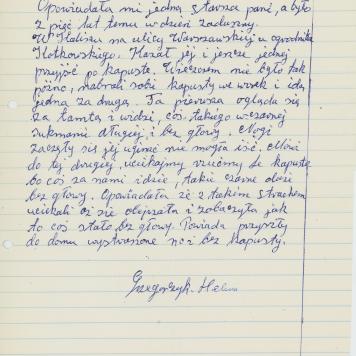 Opowiadała mi jedna starsza pani, a było
z pięć lat temu w dzień zaduszny.
W Kaliszu na ulicy Warszawskiej u ogrodnika
Kotkowskiego. Kazał jej i jeszcze jednej
przyjść po kapustę. Wieczorem nie było tak
późno, nabrali sobie kapusty we worek i idą
jedna za drugą. Ta pierwsza ogląda się
za tamtą i widzi, coś takiego w czarnej
sukmanie długiej i bez głowy. Nogi
zaczęły się jej uginać nie mogła iść. Mówi
do tej drugiej, uciekajmy rzućmy te kapustę
bo coś za nami idzie, takie czarne duże
bez głowy. Opowiadała że z takim strachem
uciekali aż się olejrzała i zobaczyła jak
to coś stało bez głowy. Powiada przyszły
do domu wystraszone no i bez kapusty.
Grzegorzyk. Helena